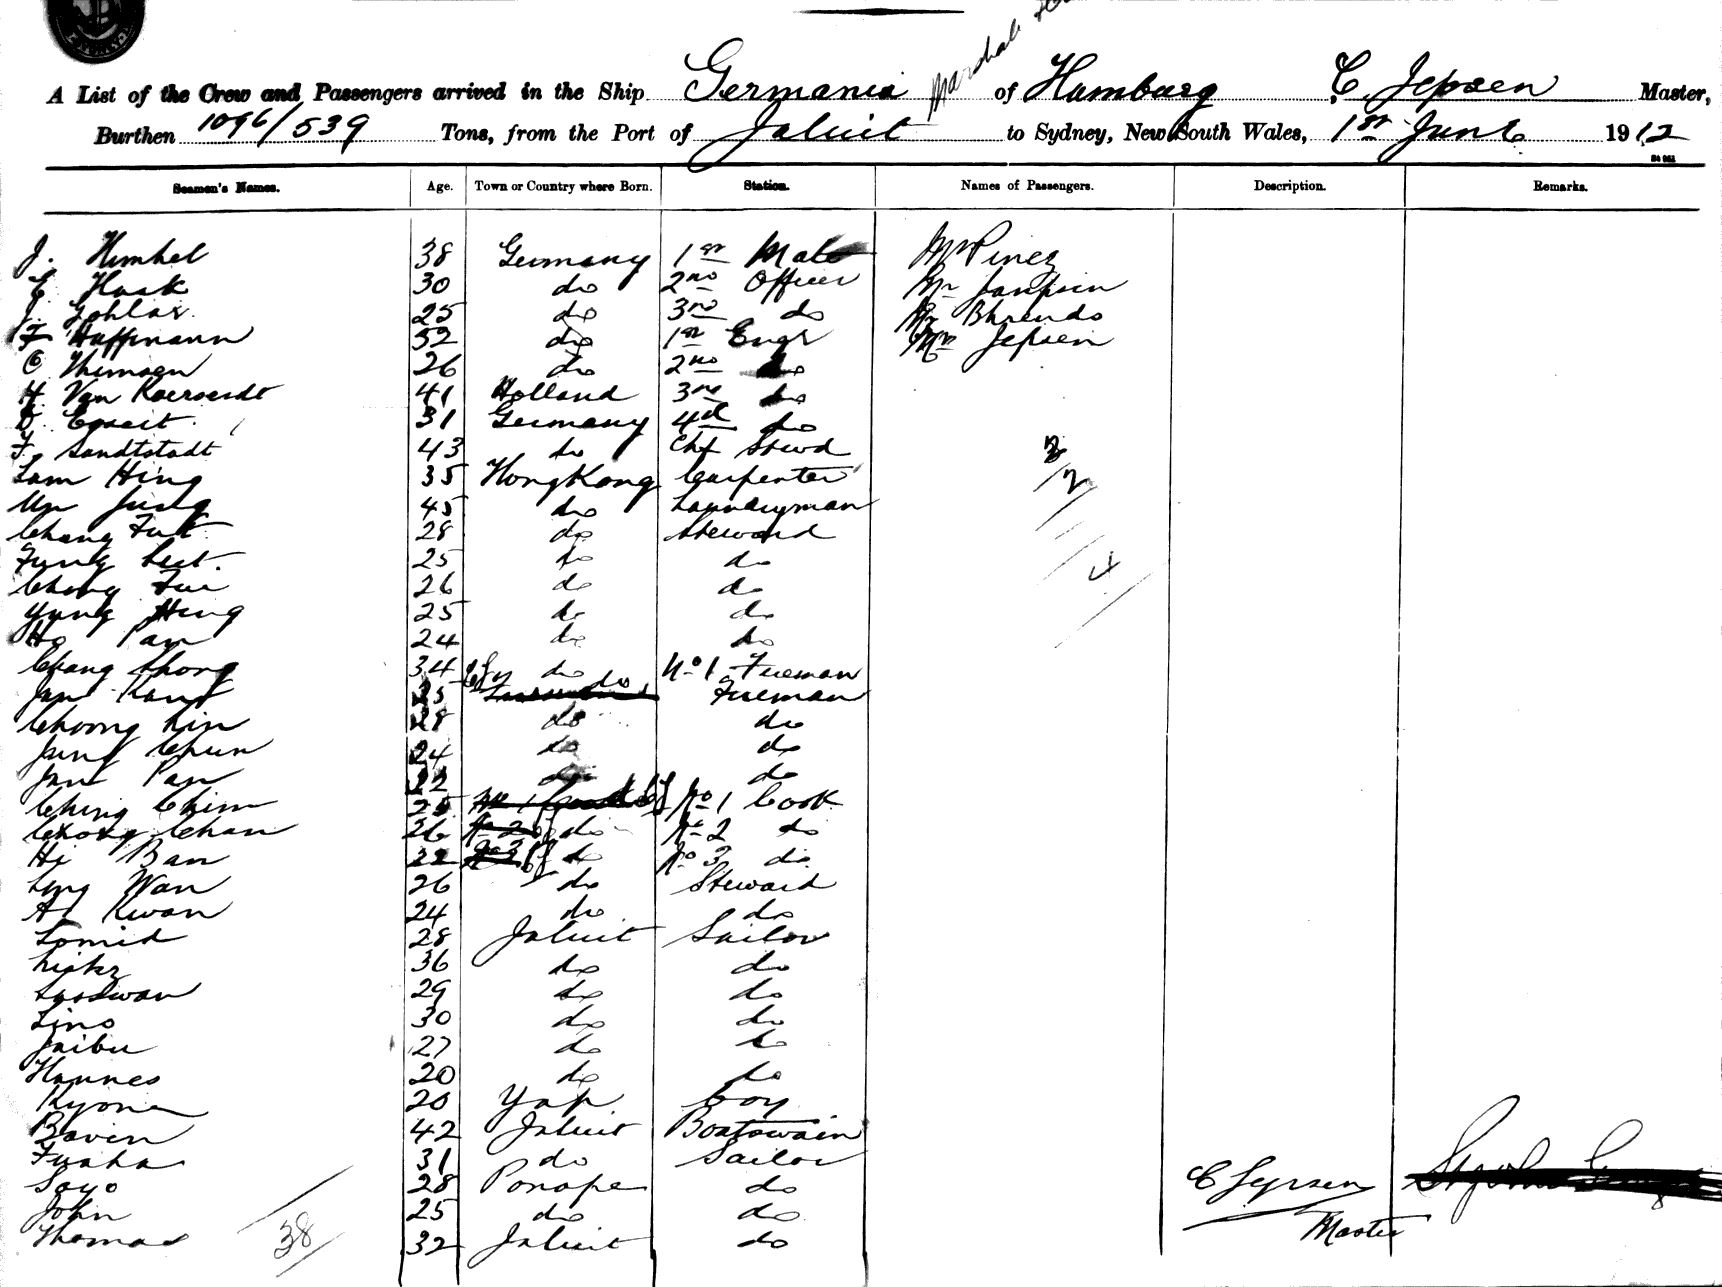 A List of the Crew and Passengers arrived in the Ship Germania of Hamburg C. Jepsen Master,
Marshall
Burthen 1096/539 Tons, from the Port of Jaluit to Sydney, New South Wales, 1st June 1912
Seamen's Names. Age. Town or Country where Born. Station. Names of Passengers. Description. Remarks.
J. Himkel 38 Germany 1st Mate Mr Pinez
E. Haak 30 do 2nd Officer Mr
J. Gohlar 25 do 3rd do Mr Bhrends
F Hoffmann 52 do 1st Engr Mrs Jepsen
C Thomsen 26 do 2nd do
H. Van 41 Holland 3rd do
31 Germany 4th do
F. Sandtstadt 43 do Chf Stewd
Lam Hing 35 HongKong Carpenter 2
45 do Laundryman
Chang Fat 28 do Steward
Fung 25 do do
Chang Fui 26 do do 4
Yung Hing 25 do do
Ho Pan 24 do do
Chang Chong 34 do No 1 Fireman
Jan Kang 25 do Fireman
Choong Kin 28 do do
Jung Chun 24 do do
Jan Pan 22 do do
Ching Chim 25 No 1 Cook
Chong Chan 26 do No 2 do
Hi Ban 22 do No 3 do
Ling Wan 26 do Steward
Ah Kwan 24 do do
Lomid 28 Jaluit Sailor
36 do do
29 do do
Lino 30 do do
Jaibu 27 do do
Hannes 20 do do
Kyona 20 Yap boy
Bavin 42 Jaluit Boatswain
31 do Sailor
Soyo 28 Ponape do C Jepsen
John 25 do do
Thomas 32 Jaluit do Master
38